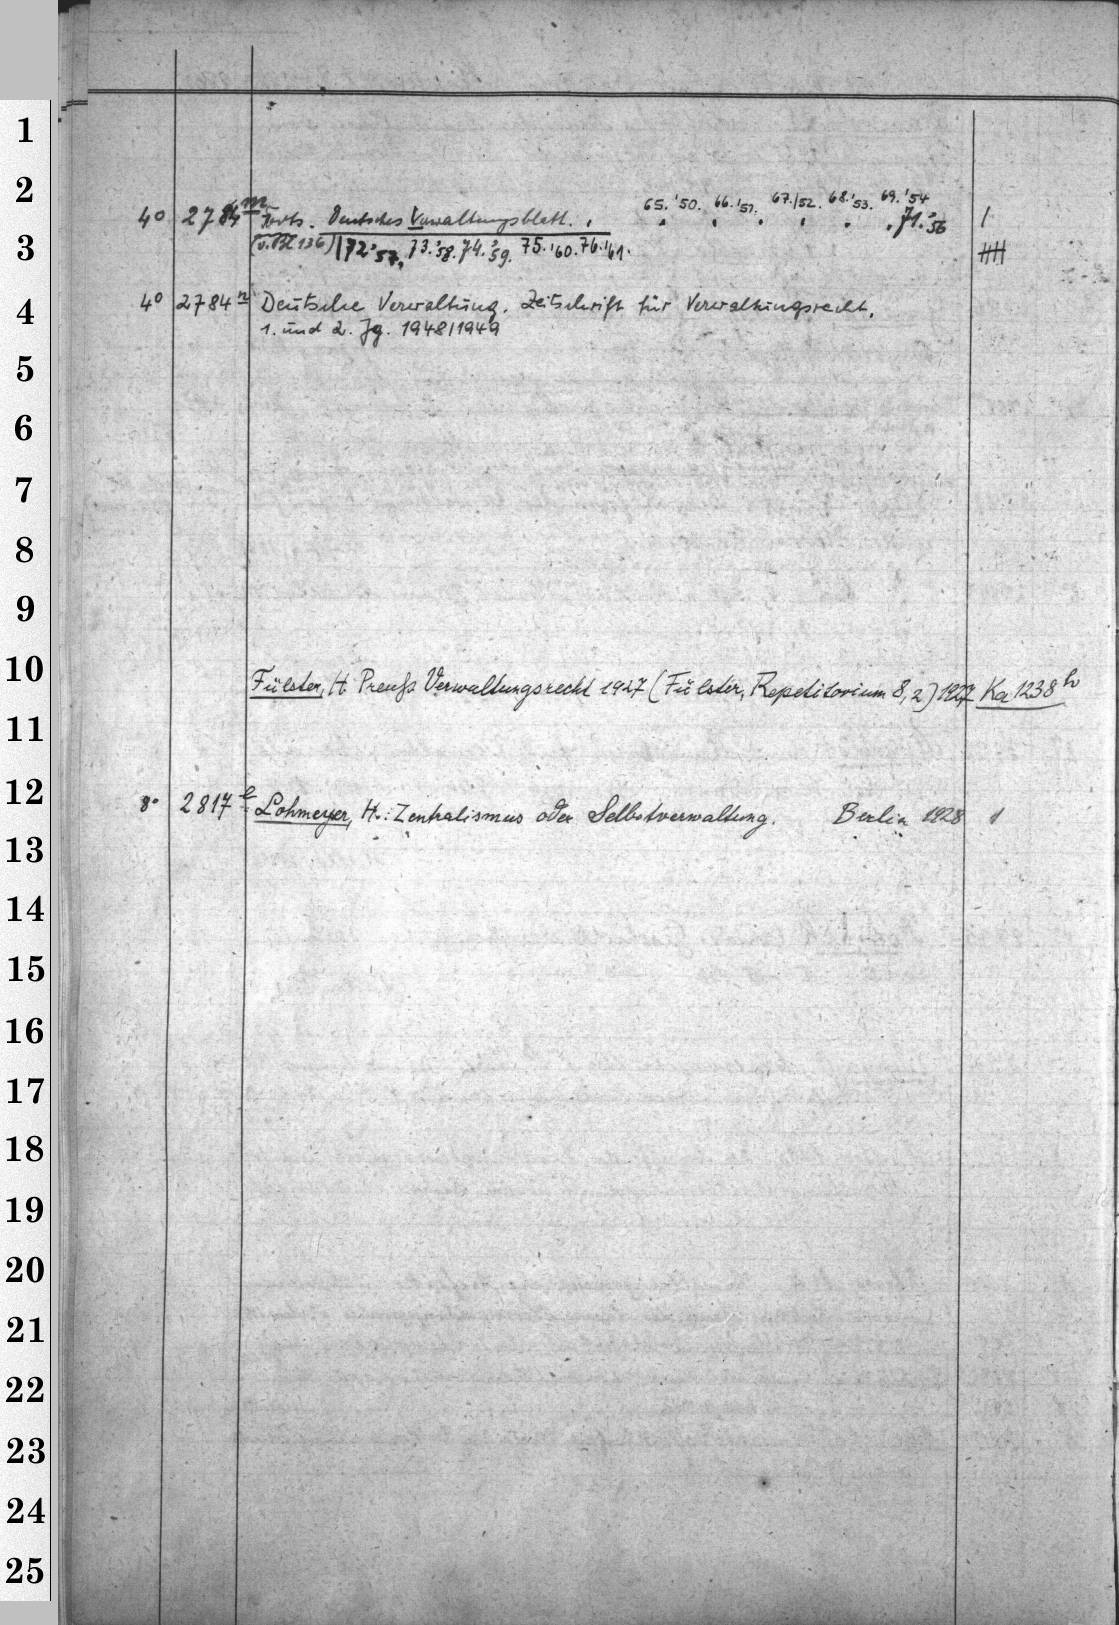 1
2
4° 2784 m Forts. Deutsches Verwaltungsblatt. 65.'50. 66.'51. 67./52. 68.'53. 69.'54 71.'56 1
3
(v. Bl 136) 72.'57, 73.'58. 74.'59. 75.'60. 76.'61.
4
4° 2784 n Deutsche Verwaltung. Zeitschrift für Verwaltungsrecht.
1. und 2. Jg. 1948/1949
5
6
7
8
9
10
Fülster, H Preuß Verwaltungsrecht 1927 (Fülster, Repetitorium 8,2) 1927 Ka 1238 h
11
12
8° 2817 e Lohmeyer, H.: Zentralismus oder Selbstverwaltung. Berlin 1928 1
13
14
15
16
17
18
19
20
21
22
23
24
25